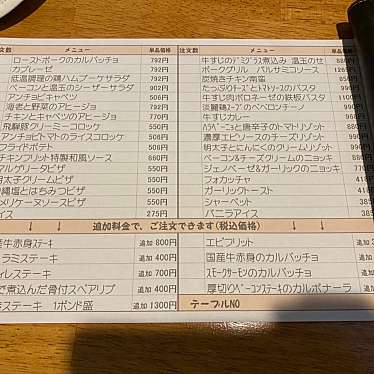 注文数 メニュー 単品価格 注文数 メニュー 単品価格
ローストポークのカルパッチョ 792円 牛すじのデミグラス煮込み 温玉のせ
カプレーゼ 792円 ポークグリル バルサミコソース
低温調理の鶏ハムブーケサラダ 792円 炭焼きチキン南蛮
ベーコンと温玉のシーザーサラダ 792円 たっぷりチーズとトマトソースのパスタ
アンチョビキャベツ 660円 牛すじ肉ボロネーゼの鉄板パスタ
海老と野菜のアヒージョ 770円 淡麗鶏スープのペペロンチーノ
チキンとキャベツのアヒージョ 770円 牛すじカレー
飛騨豚クリーミーコロッケ 550円 ハラペーニョと唐辛子のトマトリゾット
アンチョビトマトのライスコロッケ 506円 濃厚エビソースのチーズリゾット
フライドポテト 506円 明太子とにんにくのクリームリゾット
チキンフリット特製和風ソース 660円 ベーコン&チーズクリームのニョッキ
マルゲリータピザ 550円 ジェノベーゼ&ガーリックのニョッキ
明太子クリームピザ 550円 フォカッチャ
塩とはちみつピザ 550円 ガーリックトースト
メリケーヌソースピザ 550円 シャーベット
アイス 275円 バニラアイス
追加料金で、ご注文できます(税込価格)
牛赤身ステーキ 追加 800円 エビフリット
ラミステーキ 追加 400円 国産牛赤身のカルパッチョ
ィレステーキ 追加 700円 スモークサーモンのカルパッチョ
で煮込んだ骨付スペアリブ 追加 400円 厚切りベーコンステーキのカルボナーラ 追加
ステーキ 1ポンド盛 追加 1300円 テーブルNO